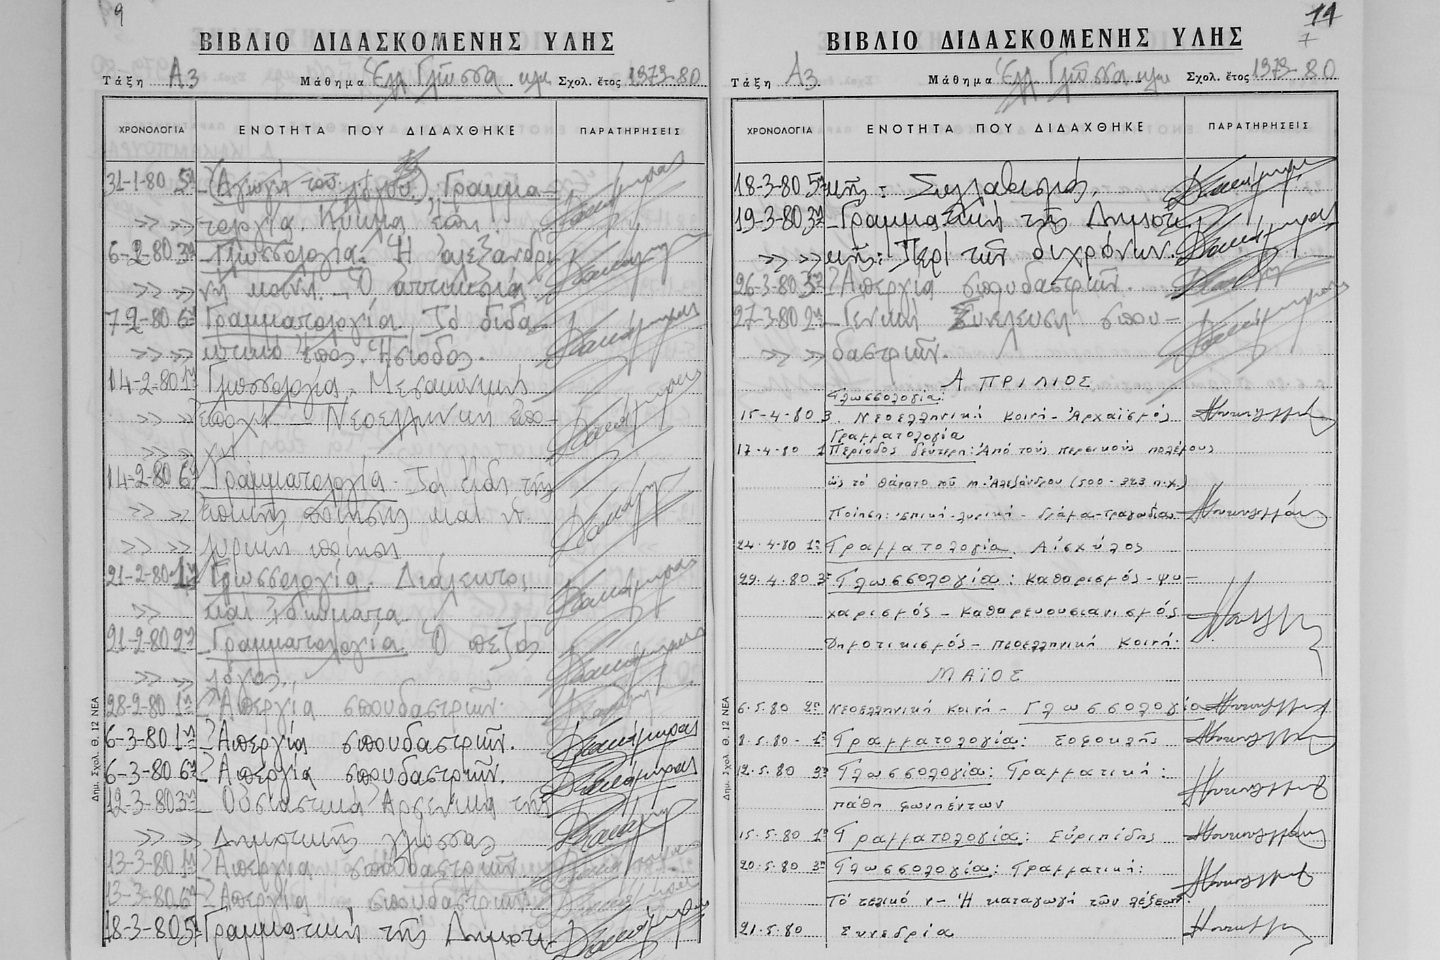 9
ΒΙΒΛΙΟ ΔΙΔΑΣΚΟΜΕΝΗΣ ΥΛΗΣ
Τάξη Α3 Μάθημα Ἑλ. Γλῶσσα Σχολ. ἔτος 1979-80
ΧΡΟΝΟΛΟΓΙΑ ΕΝΟΤΗΤΑ ΠΟΥ ΔΙΔΑΧΘΗΚΕ ΠΑΡΑΤΗΡΗΣΕΙΣ
31-1-80 5η (Ἀγωγή τοῦ λόγου), Γραμμα-
>> >> τολογία. Κύκλια ἔπη.
6-2-80 3η Γλωσσολογία. Ἡ ἀλεξανδρι-
>> >> νή κοινή. - Ὁ ἀττικισμός
7-2-80 6η Γραμματολογία. Τό διδα-
>> >> κτικό ἔπος. Ἡσίοδος.
14-2-80 1η Γλωσσολογία. Μεσαιωνική
>> >> ἐποχή - Νεοελληνική ἐπο-
>> >> χή
14-2-80 6η Γραμματολογία - Τά εἴδη τῆς
>> >> ἐπικῆς ποίησης καί ἡ
>> >> λυρική ποίηση
21-2-80 1η Γλωσσολογία. Διάλεκτοι
>> καί ἰδιώματα.
21-2-80 2η Γραμματολογία. Ὁ πεζός
>> >> λόγος.
28-2-80 1η Ἀπεργία σπουδαστριῶν.
6-3-80 1η Ἀπεργία σπουδαστριῶν.
6-3-80 6η Ἀπεργία σπουδαστριῶν.
12-3-80 3η Οὐσιαστικά Ἀρσενικά τῆς
>> >> Δημοτικῆς γλώσσας
13-3-80 1η Ἀπεργία σπουδαστριῶν
13-3-80 6η Ἀπεργία σπουδαστριῶν
18-3-80 5η Γραμματική τῆς Δημοτι-
Δημ. Σχολ. Θ. 12 ΝΕΑ
11
ΒΙΒΛΙΟ ΔΙΔΑΣΚΟΜΕΝΗΣ ΥΛΗΣ
Τάξη Α3 Μάθημα Ἑλ. Γλῶσσα Σχολ. ἔτος 1979-80
ΧΡΟΝΟΛΟΓΙΑ ΕΝΟΤΗΤΑ ΠΟΥ ΔΙΔΑΧΘΗΚΕ ΠΑΡΑΤΗΡΗΣΕΙΣ
18-3-80 5η κῆς: Συλλαβισμός.
19-3-80 3η Γραμματική τῆς Δημοτι-
>> >> κῆς: Περί τῶν διχρόνων.
26-3-80 3η Ἀπεργία σπουδαστριῶν.
27-3-80 2η Γενική Συνέλευση σπου-
>> >> δαστριῶν.
ΑΠΡΙΛΙΟΣ
Γλωσσολογία:
15-4-80 3 Νεοελληνική κοινή - Ἀρχαϊσμός
Γραμματολογία
17-4-80 1 Περίοδος δεύτερη: Ἀπό τούς περσικούς πολέμους
ὡς τό θάνατο τοῦ Μ. Ἀλεξάνδρου (500-323 π.χ.)
Ποίηση: ἐπική-λυρική - Δράμα-τραγωδία
24-4-80 1η Γραμματολογία. Αἰσχύλος
29-4-80 3η Γλωσσολογία: Καθαρισμός - ψυ-
χαρισμός - Καθαρευουσιανισμός
Δημοτικισμός - Νεοελληνική Κοινή.
ΜΑΪΟΣ
6-5-80 2η Νεοελληνική κοινή - Γλωσσολογία
8-5-80 1η Γραμματολογία: Σοφοκλῆς
12-5-80 3η Γλωσσολογία: Γραμματική:
πάθη φωνηέντων
15-5-80 1η Γραμματολογία: Εὐριπίδης
20-5-80 3η Γλωσσολογία: Γραμματική:
Τό τελικό ν - Ἡ καταγωγή τῶν λέξεων
21-5-80 Συνεδρία
Δημ. Σχολ. Θ. 12 ΝΕΑ